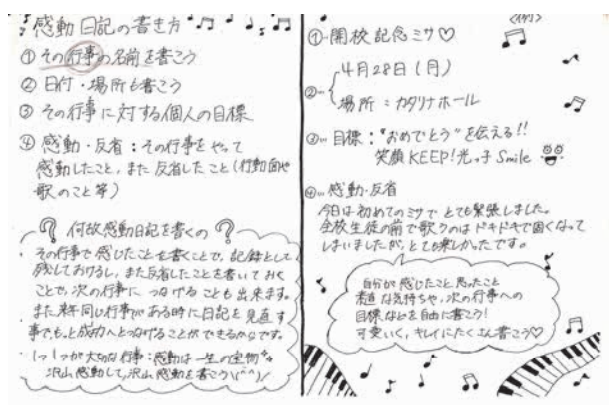 感動日記の書き方
① その行事の名前を書こう
② 日付・場所も書こう
③ その行事に対する個人の目標
④ 感動・反省：その行事をやって
感動したこと、また反省したこと(行動面や
歌のこと等)
何故感動日記を書くの?
その行事で感じたことを書くことで、記録として
残しておけるし、また反省したことを書いておく
ことで、次の行事につなげることも出来ます。
また来年同じ行事がある時に日記を見直す
事で、もっと成功へとつなげることができるからです。
1つ1つが大切な行事：感動は一生の宝物
沢山感動して、沢山感動を書こう\(^^)/
<例>
①…開校記念ミサ♡
②… 4月28日(月)
場所：カタリナホール
③…目標："おめでとう"を伝える!!
笑顔KEEP!光っ子Smile
④…感動・反省
今日は初めてのミサでとても緊張しました。
全校生徒の前で歌うのはドキドキで固くなって
しまいましたが、とても楽しかったです。
自分が感じたこと、思ったこと
素直な気持ちや、次の行事への
目標などを自由に書こう!
可愛いく、キレイにたくさん書こう♡